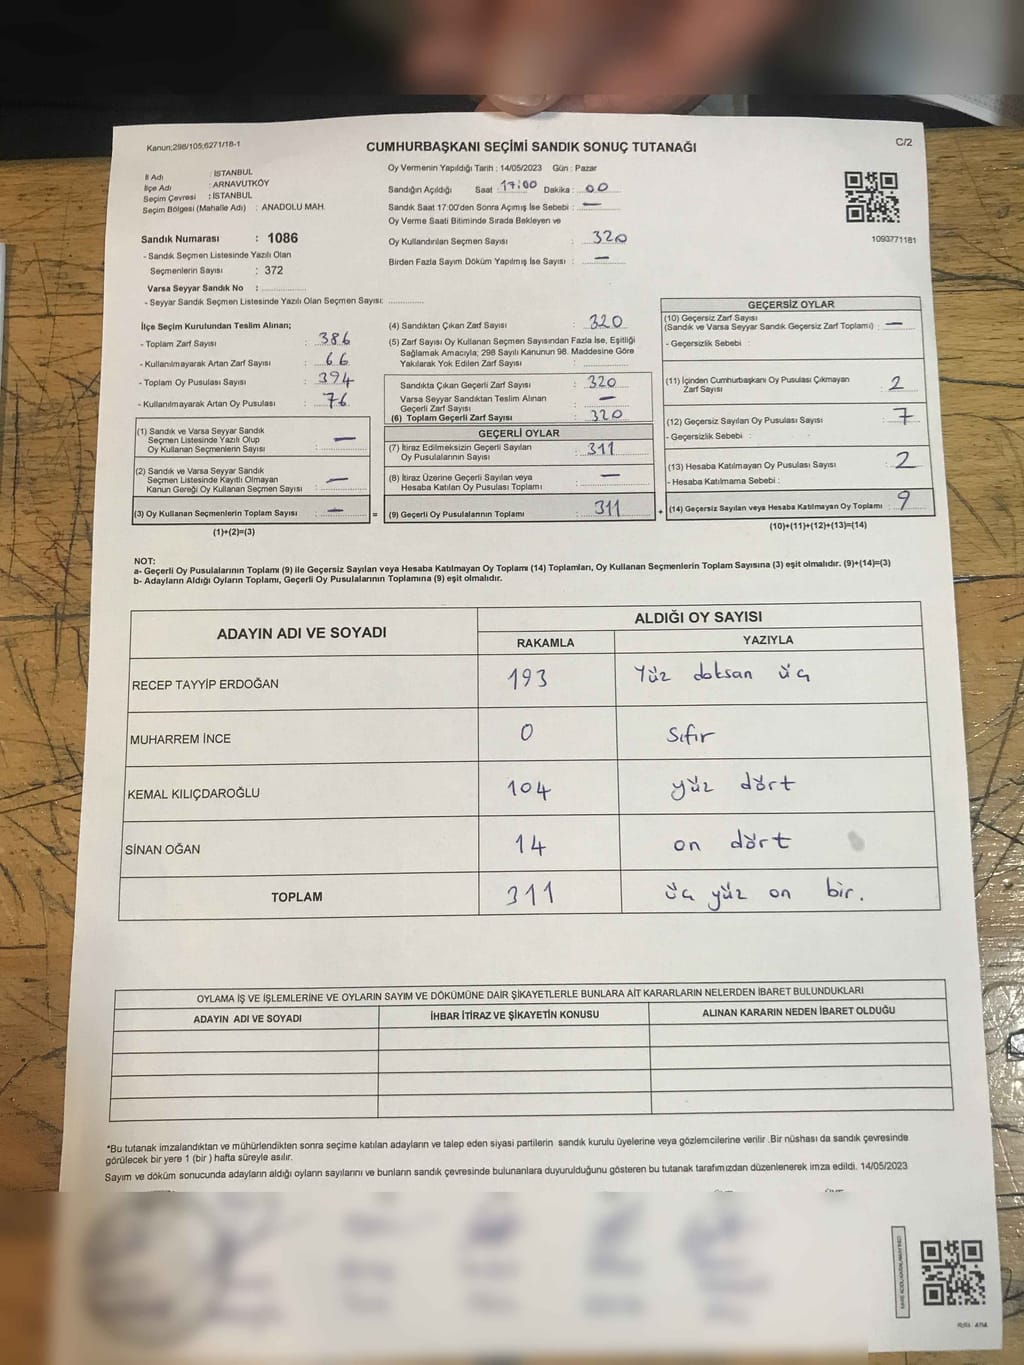 Kanun;298/105;6271/18-1
CUMHURBAŞKANI SEÇİMİ SANDIK SONUÇ TUTANAĞI
C/2
İl Adı : İSTANBUL
İlçe Adı : ARNAVUTKÖY
Seçim Çevresi : İSTANBUL
Seçim Bölgesi (Mahalle Adı) : ANADOLU MAH.
Oy Vermenin Yapıldığı Tarih : 14/05/2023 Gün : Pazar
Sandığın Açıldığı Saat : 17:00 Dakika : 00
Sandık Saat 17:00'den Sonra Açımış İse Sebebi : —
Oy Verme Saati Bitiminde Sırada Bekleyen ve
Oy Kullandırılan Seçmen Sayısı : 320
Birden Fazla Sayım Döküm Yapılmış İse Sayısı : —
1093771181
Sandık Numarası : 1086
- Sandık Seçmen Listesinde Yazılı Olan
Seçmenlerin Sayısı : 372
Varsa Seyyar Sandık No : ..............
- Seyyar Sandık Seçmen Listesinde Yazılı Olan Seçmen Sayısı: ............
İlçe Seçim Kurulundan Teslim Alınan;
- Toplam Zarf Sayısı : 386
- Kullanılmayarak Artan Zarf Sayısı : 66
- Toplam Oy Pusulası Sayısı : 394
- Kullanılmayarak Artan Oy Pusulası : 76
(1) Sandık ve Varsa Seyyar Sandık
Seçmen Listesinde Yazılı Olup
Oy Kullanan Seçmenlerin Sayısı : —
(2) Sandık ve Varsa Seyyar Sandık
Seçmen Listesinde Kayıtlı Olmayan
Kanun Gereği Oy Kullanan Seçmen Sayısı : —
(3) Oy Kullanan Seçmenlerin Toplam Sayısı : —
(1)+(2)=(3)
(4) Sandıktan Çıkan Zarf Sayısı : 320
(5) Zarf Sayısı Oy Kullanan Seçmen Sayısından Fazla İse, Eşitliği
Sağlamak Amacıyla; 298 Sayılı Kanunun 98. Maddesine Göre
Yakılarak Yok Edilen Zarf Sayısı : ..............
Sandıkta Çıkan Geçerli Zarf Sayısı : 320
Varsa Seyyar Sandıktan Teslim Alınan
Geçerli Zarf Sayısı : —
(6) Toplam Geçerli Zarf Sayısı : 320
GEÇERLİ OYLAR
(7) İtiraz Edilmeksizin Geçerli Sayılan
Oy Pusulalarının Sayısı : 311
(8) İtiraz Üzerine Geçerli Sayılan veya
Hesaba Katılan Oy Pusulası Toplamı : —
= (9) Geçerli Oy Pusulalarının Toplamı : 311
GEÇERSİZ OYLAR
(10) Geçersiz Zarf Sayısı
(Sandık ve Varsa Seyyar Sandık Geçersiz Zarf Toplamı) : —
- Geçersizlik Sebebi :
(11) İçinden Cumhurbaşkanı Oy Pusulası Çıkmayan
Zarf Sayısı : 2
(12) Geçersiz Sayılan Oy Pusulası Sayısı : 7
- Geçersizlik Sebebi :
(13) Hesaba Katılmayan Oy Pusulası Sayısı : 2
- Hesaba Katılmama Sebebi :
+ (14) Geçersiz Sayılan veya Hesaba Katılmayan Oy Toplamı : 9
(10)+(11)+(12)+(13)=(14)
NOT:
a- Geçerli Oy Pusulalarının Toplamı (9) ile Geçersiz Sayılan veya Hesaba Katılmayan Oy Toplamı (14) Toplamları, Oy Kullanan Seçmenlerin Toplam Sayısına (3) eşit olmalıdır. (9)+(14)=(3)
b- Adayların Aldığı Oyların Toplamı, Geçerli Oy Pusulalarının Toplamına (9) eşit olmalıdır.
ADAYIN ADI VE SOYADI ALDIĞI OY SAYISI
RAKAMLA YAZIYLA
RECEP TAYYİP ERDOĞAN 193 Yüz doksan üç
MUHARREM İNCE 0 Sıfır
KEMAL KILIÇDAROĞLU 104 yüz dört
SİNAN OĞAN 14 on dört
TOPLAM 311 üç yüz on bir.
OYLAMA İŞ VE İŞLEMLERİNE VE OYLARIN SAYIM VE DÖKÜMÜNE DAİR ŞİKAYETLERLE BUNLARA AİT KARARLARIN NELERDEN İBARET BULUNDUKLARI
ADAYIN ADI VE SOYADI İHBAR İTİRAZ VE ŞİKAYETİN KONUSU ALINAN KARARIN NEDEN İBARET OLDUĞU
*Bu tutanak imzalandıktan ve mühürlendikten sonra seçime katılan adayların ve talep eden siyasi partilerin sandık kurulu üyelerine veya gözlemcilerine verilir .Bir nüshası da sandık çevresinde
görülecek bir yere 1 (bir ) hafta süreyle asılır.
Sayım ve döküm sonucunda adayların aldığı oyların sayılarını ve bunların sandık çevresinde bulunanlara duyurulduğunu gösteren bu tutanak tarafımızdan düzenlenerek imza edildi. 14/05/2023